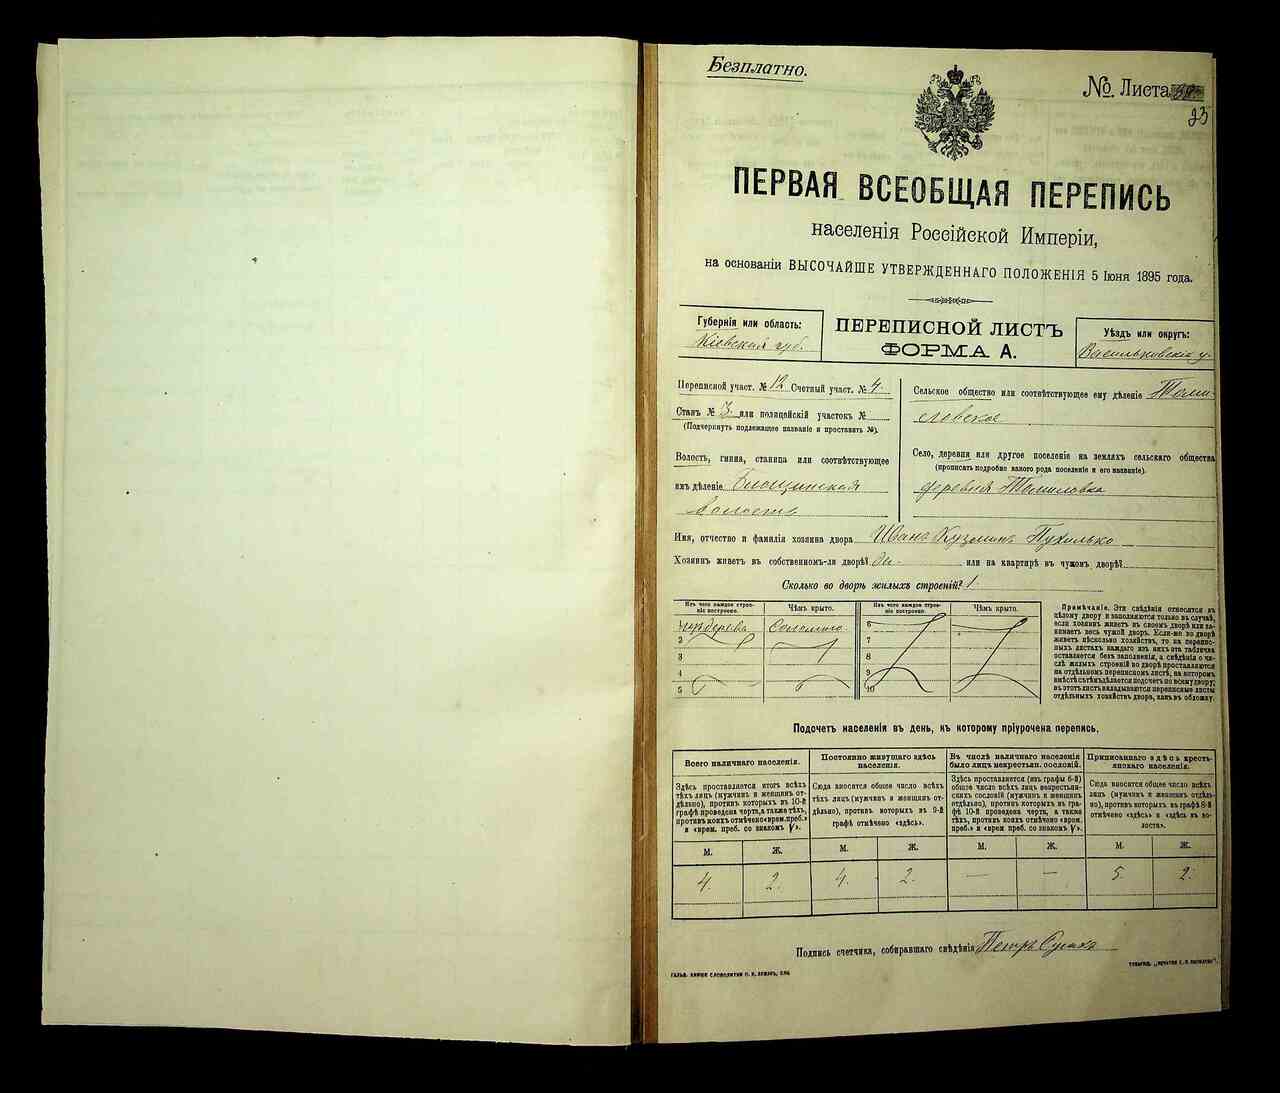 Безплатно.
№ Листа
23
ПЕРВАЯ ВСЕОБЩАЯ ПЕРЕПИСЬ
населенія Россійской Имперіи,
на основаніи ВЫСОЧАЙШЕ УТВЕРЖДЕННАГО ПОЛОЖЕНІЯ 5 Іюня 1895 года.
Губернія или область:
Кіевская губ.
ПЕРЕПИСНОЙ ЛИСТЪ
ФОРМА А.
Уѣздъ или округъ:
Васильковскій у.
Переписной участ. № 12 Счетный участ. № 4.
Станъ № 3. или полицейскій участокъ №
(Подчеркнуть подлежащее названіе и проставить №).
Волость, гмина, станица или соотвѣтствующее
имъ дѣленіе
волость
Сельское общество или соотвѣтствующее ему дѣленіе Томи-
ловское
Село, деревня или другое поселеніе на земляхъ сельскаго общества
(прописать подробно какого рода поселеніе и его названіе).
деревня Томиловка
Имя, отчество и фамилія хозяина двора Иванъ Кузминъ Пухалько
Хозяинъ живетъ въ собственномъ-ли дворѣ? да. или на квартирѣ въ чужомъ дворѣ?
Сколько во дворѣ жилыхъ строеній? 1.
Изъ чего каждое строе-
ніе построено.
Чѣмъ крыто.
Изъ чего каждое строе-
ніе построено.
Чѣмъ крыто.
1 изъ дерева Соломою 6
2 7
3 8
4 9
5 10
Примѣчаніе. Эти свѣдѣнія относятся къ
цѣлому двору и заполняются только въ случаѣ,
если хозяинъ живетъ въ своемъ дворѣ или за-
нимаетъ весь чужой дворъ. Если-же во дворѣ
живетъ нѣсколько хозяйствъ, то на перепис-
ныхъ листахъ каждаго изъ нихъ эта табличка
оставляется безъ заполненія, а свѣдѣнія о чи-
слѣ жилыхъ строеній во дворѣ проставляются
на отдѣльномъ переписномъ листѣ, на которомъ
вмѣстѣ съ тѣмъ дѣлается подсчетъ по всему двору;
въ этотъ листъ вкладываются переписные листы
отдѣльныхъ хозяйствъ двора, какъ въ обложку.
Подсчетъ населенія въ день, къ которому пріурочена перепись.
Всего наличнаго населенія.
Здѣсь проставляется итогъ всѣхъ
тѣхъ лицъ (мужчинъ и женщинъ от-
дѣльно), противъ которыхъ въ 10-й
графѣ проведена черта, а также тѣхъ,
противъ коихъ отмѣчено «врем. преб.»
и «врем. преб. со знакомъ V».
Постоянно живущаго здѣсь
населенія.
Сюда вносится общее число всѣхъ
тѣхъ лицъ (мужчинъ и женщинъ от-
дѣльно), противъ которыхъ въ 9-й
графѣ отмѣчено «здѣсь».
Въ числѣ наличнаго населенія
было лицъ некрестьян. сословій.
Здѣсь проставляется (изъ графы 6-й)
общее число всѣхъ лицъ некрестьян-
скихъ сословій (мужчинъ и женщинъ
отдѣльно), противъ которыхъ въ гра-
фѣ 10-й проведена черта, а также
тѣхъ, противъ коихъ отмѣчено «врем.
преб.» и «врем. преб. со знакомъ V».
Приписаннаго здѣсь кресть-
янскаго населенія.
Сюда вносится общее число всѣхъ
лицъ (мужчинъ и женщинъ отдѣль-
но), противъ которыхъ въ графѣ 8-й
отмѣчено «здѣсь» и «здѣсь въ во-
лости».
М. Ж. М. Ж. М. Ж. М. Ж.
4. 2. 4. 2. — — 5. 2.
Подпись счетчика, собиравшаго свѣдѣнія Петръ